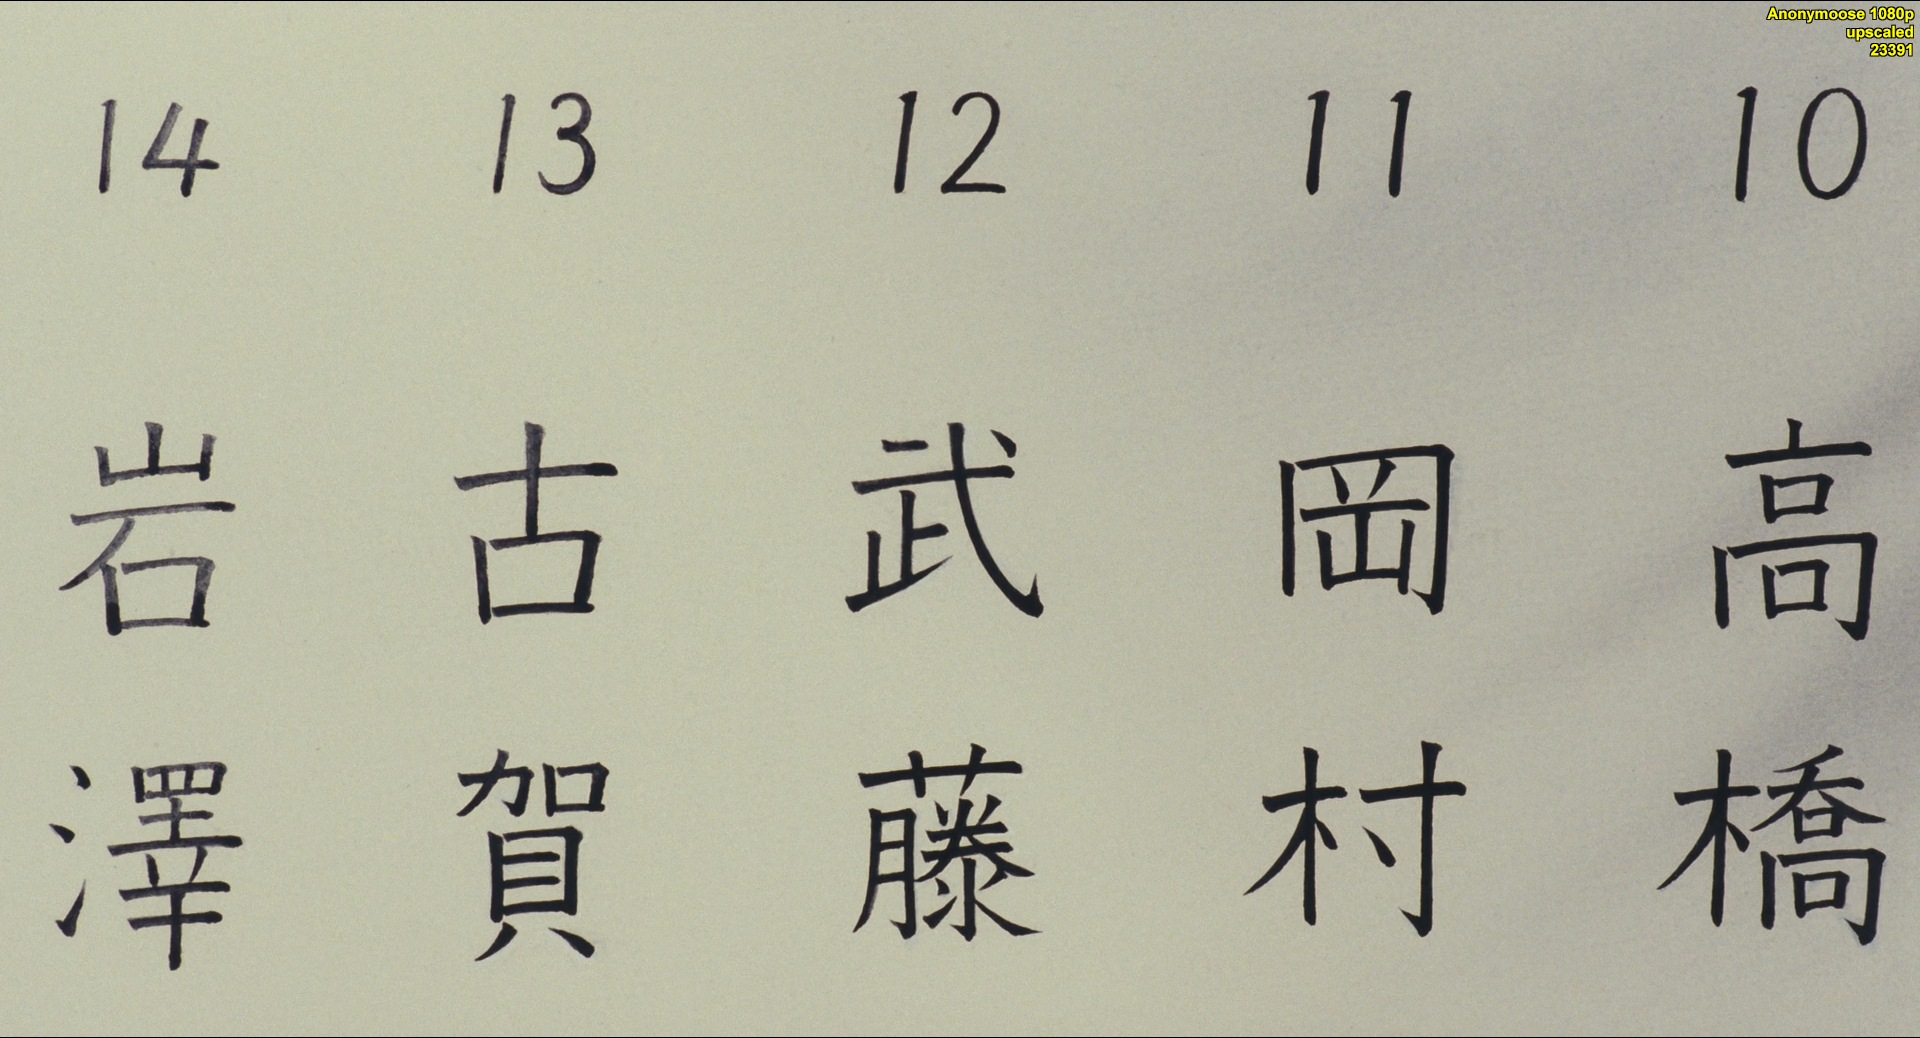 Anonymoose 1080p
upscaled
23391
10 高橋
11 岡村
12 武藤
13 古賀
14 岩澤